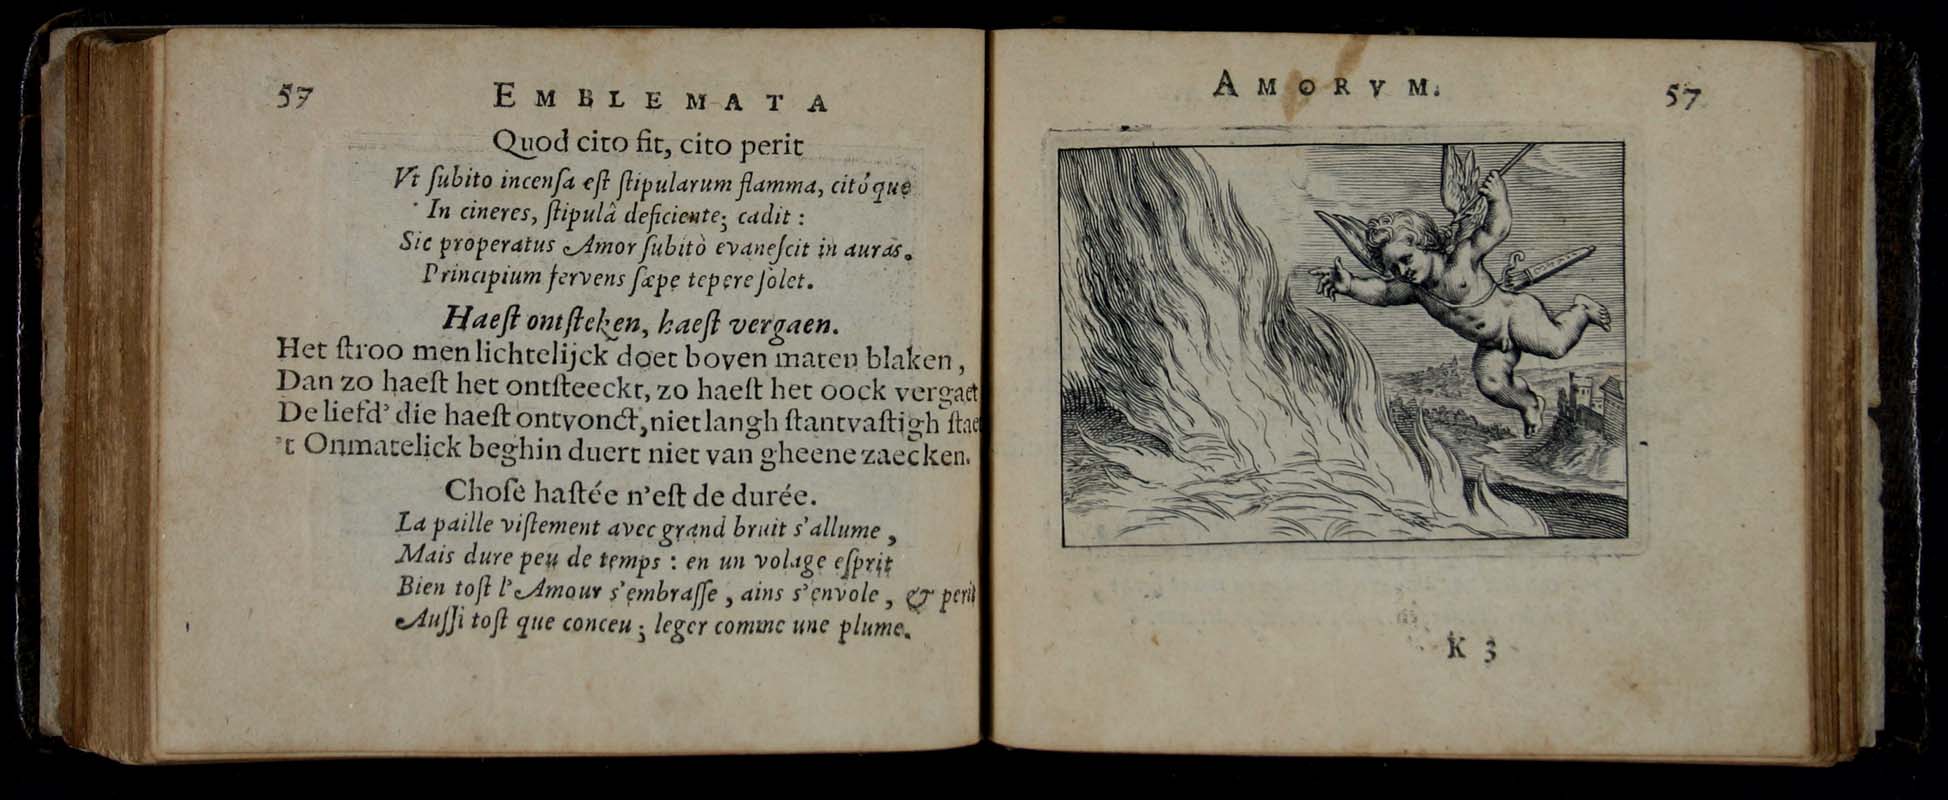 57 EMBLEMATA
Quod cito fit, cito perit
Vt ſubito incenſa eſt ſtipularum flamma, citóque
In cineres, ſtipulâ deficiente; cadit:
Sic properatus Amor ſubitò evaneſcit in auras.
Principium fervens ſæpe tepere ſolet.
Haeſt ontſteken, haeſt vergaen.
Het ſtroo men lichtelijck doet boven maten blaken,
Dan zo haeſt het ontſteeckt, zo haeſt het oock vergaet
De liefd' die haeſt ontvonct, niet langh ſtantvaſtigh ſtaet
't Onmatelick beghin duert niet van gheene zaecken.
Choſe haſtée n'eſt de durée.
La paille viſtement avec grand bruit s'allume,
Mais dure peu de temps: en un volage eſprit
Bien toſt l'Amour s'embraſſe, ains s'envole, & perit
Auſſi toſt que conceu; leger comme une plume.
AMORVM. 57
K 3